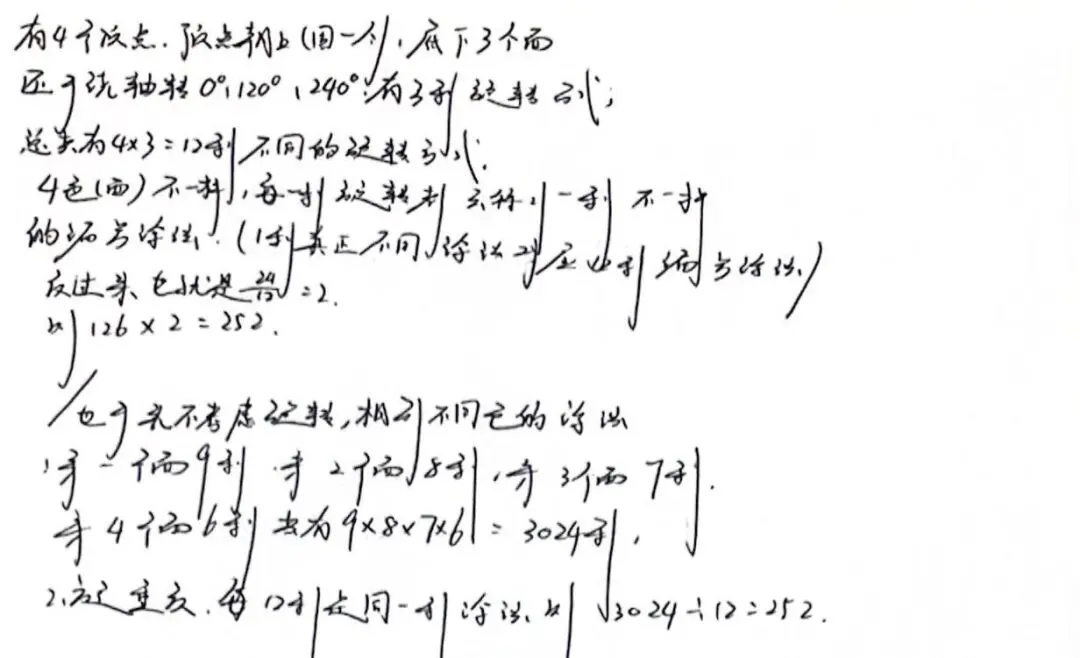 有4个顶点.顶点朝上(固一个),底下3个面
还可绕轴转0°,120°,240°.有3种旋转方式;
总共有4×3=12种不同的旋转方式.
4色(面)不一样,每一种旋转都会得到一种不一样
的编号涂法.(1种真正不同涂法对应12种编号涂法)
反过来也就是24/12=2.
则126×2=252.
也可先不考虑旋转,相邻不同色的涂法
1.第一个面9种.第2个面8种,第3个面7种.
第4个面6种共有9×8×7×6=3024种,
2.旋转重复.每12种是同一种涂法.则3024÷12=252.